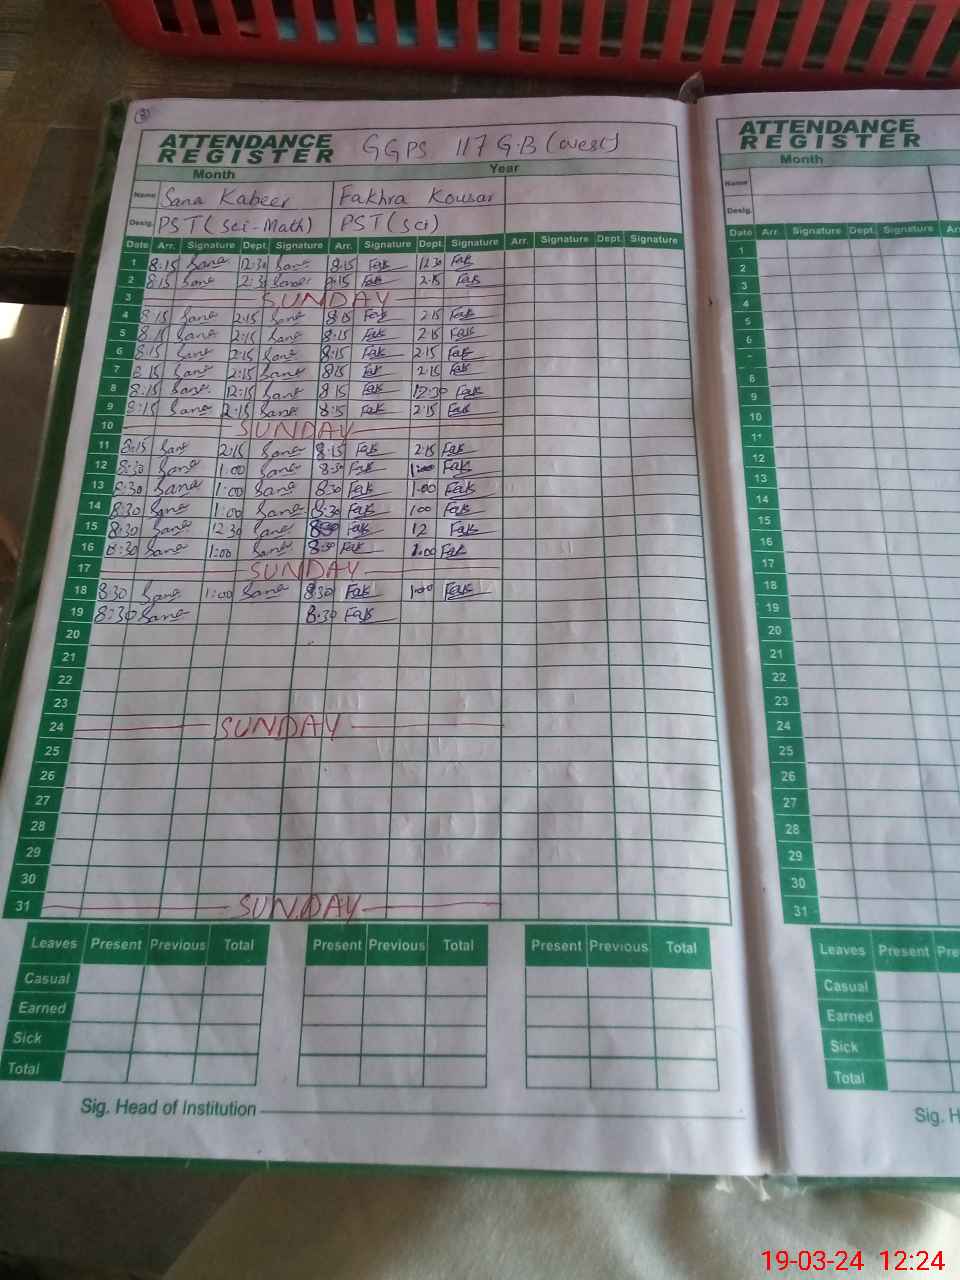 3
ATTENDANCE REGISTER GGPS 117 G.B (west)
Month Year
Name Sana Kabeer Fakhra Kousar
Desig. PST (Sci-Math) PST (Sci)
Date Arr. Signature Dept. Signature Arr. Signature Dept. Signature Arr. Signature Dept. Signature
1 8:15 Sana 12:30 Sana 8:15 Fak 12:30 Fak
2 8:15 Sana 2:15 Fak
3 SUNDAY
4 8:15 Sana 2:15 Sana 8:15 Fak 2:15 Fak
5 8:15 Sana 2:15 Sana 8:15 Fak 2:15 Fak
6 8:15 Sana 2:15 Sana 8:15 Fak 2:15 Fak
7 8:15 Sana 2:15 Sana 8:15 Fak 2:15 Fak
8 8:15 Sana 12:15 Sana 8:15 Fak 12:30 Fak
9 8:15 Sana 2:15 Sana 8:15 Fak 2:15 Fak
10 SUNDAY
11 8:15 Sana 2:15 Sana 8:15 Fak 2:15 Fak
12 8:30 Sana 1:00 Sana 8:30 Fak 1:00 Fak
13 8:30 Sana 1:00 Sana 8:30 Fak 1:00 Fak
14 8:30 Sana 1:00 Sana 8:30 Fak 1:00 Fak
15 8:30 Sana 12:30 Sana Fak 12 Fak
16 8:30 Sana 1:00 Sana 8:30 Fak 1:00 Fak
17 SUNDAY
18 8:30 Sana 1:00 Sana 8:30 Fak 1:00 Fak
19 8:30 Sana 8:30 Fak
20
21
22
23
24 SUNDAY
25
26
27
28
29
30
31 SUNDAY
Leaves Present Previous Total Present Previous Total Present Previous Total
Casual
Earned
Sick
Total
Sig. Head of Institution
ATTENDANCE REGISTER
Month
Name
Desig.
Date Arr. Signature Dept. Signature
1
2
3
4
5
6
8
9
10
11
12
13
14
15
16
17
18
19
20
21
22
23
24
25
26
27
28
29
30
31
Leaves Present
Casual
Earned
Sick
Total
Sig.
19-03-24 12:24